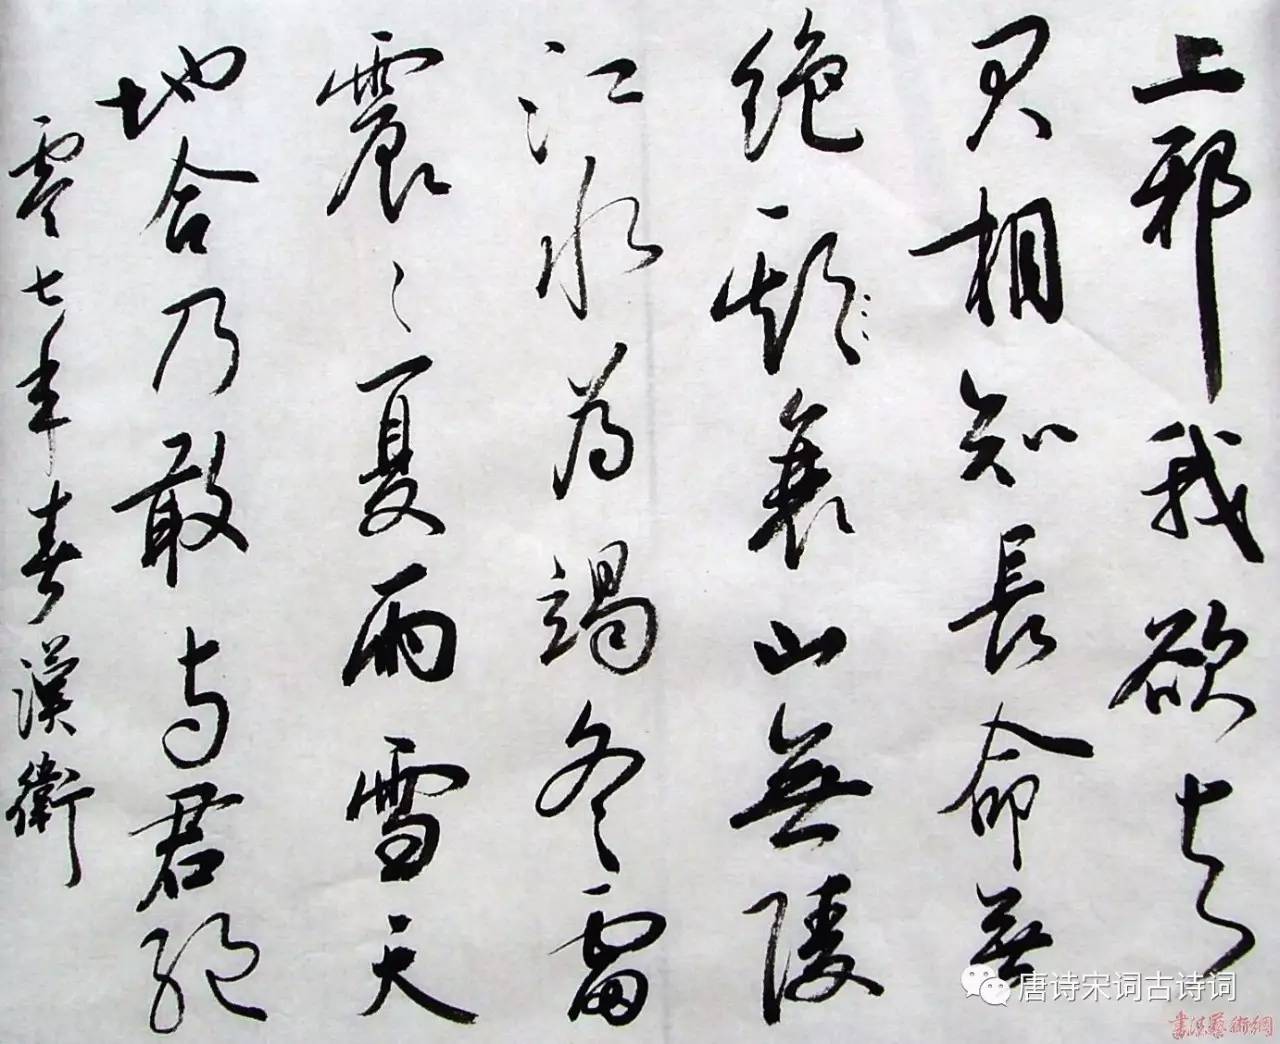 上邪我欲与
君相知長命無
絶衰山無陵
江水为竭冬雷
震々夏雨雪天
地合乃敢与君絶
零七年春漢衛
唐诗宋词古诗词
書法藝術網